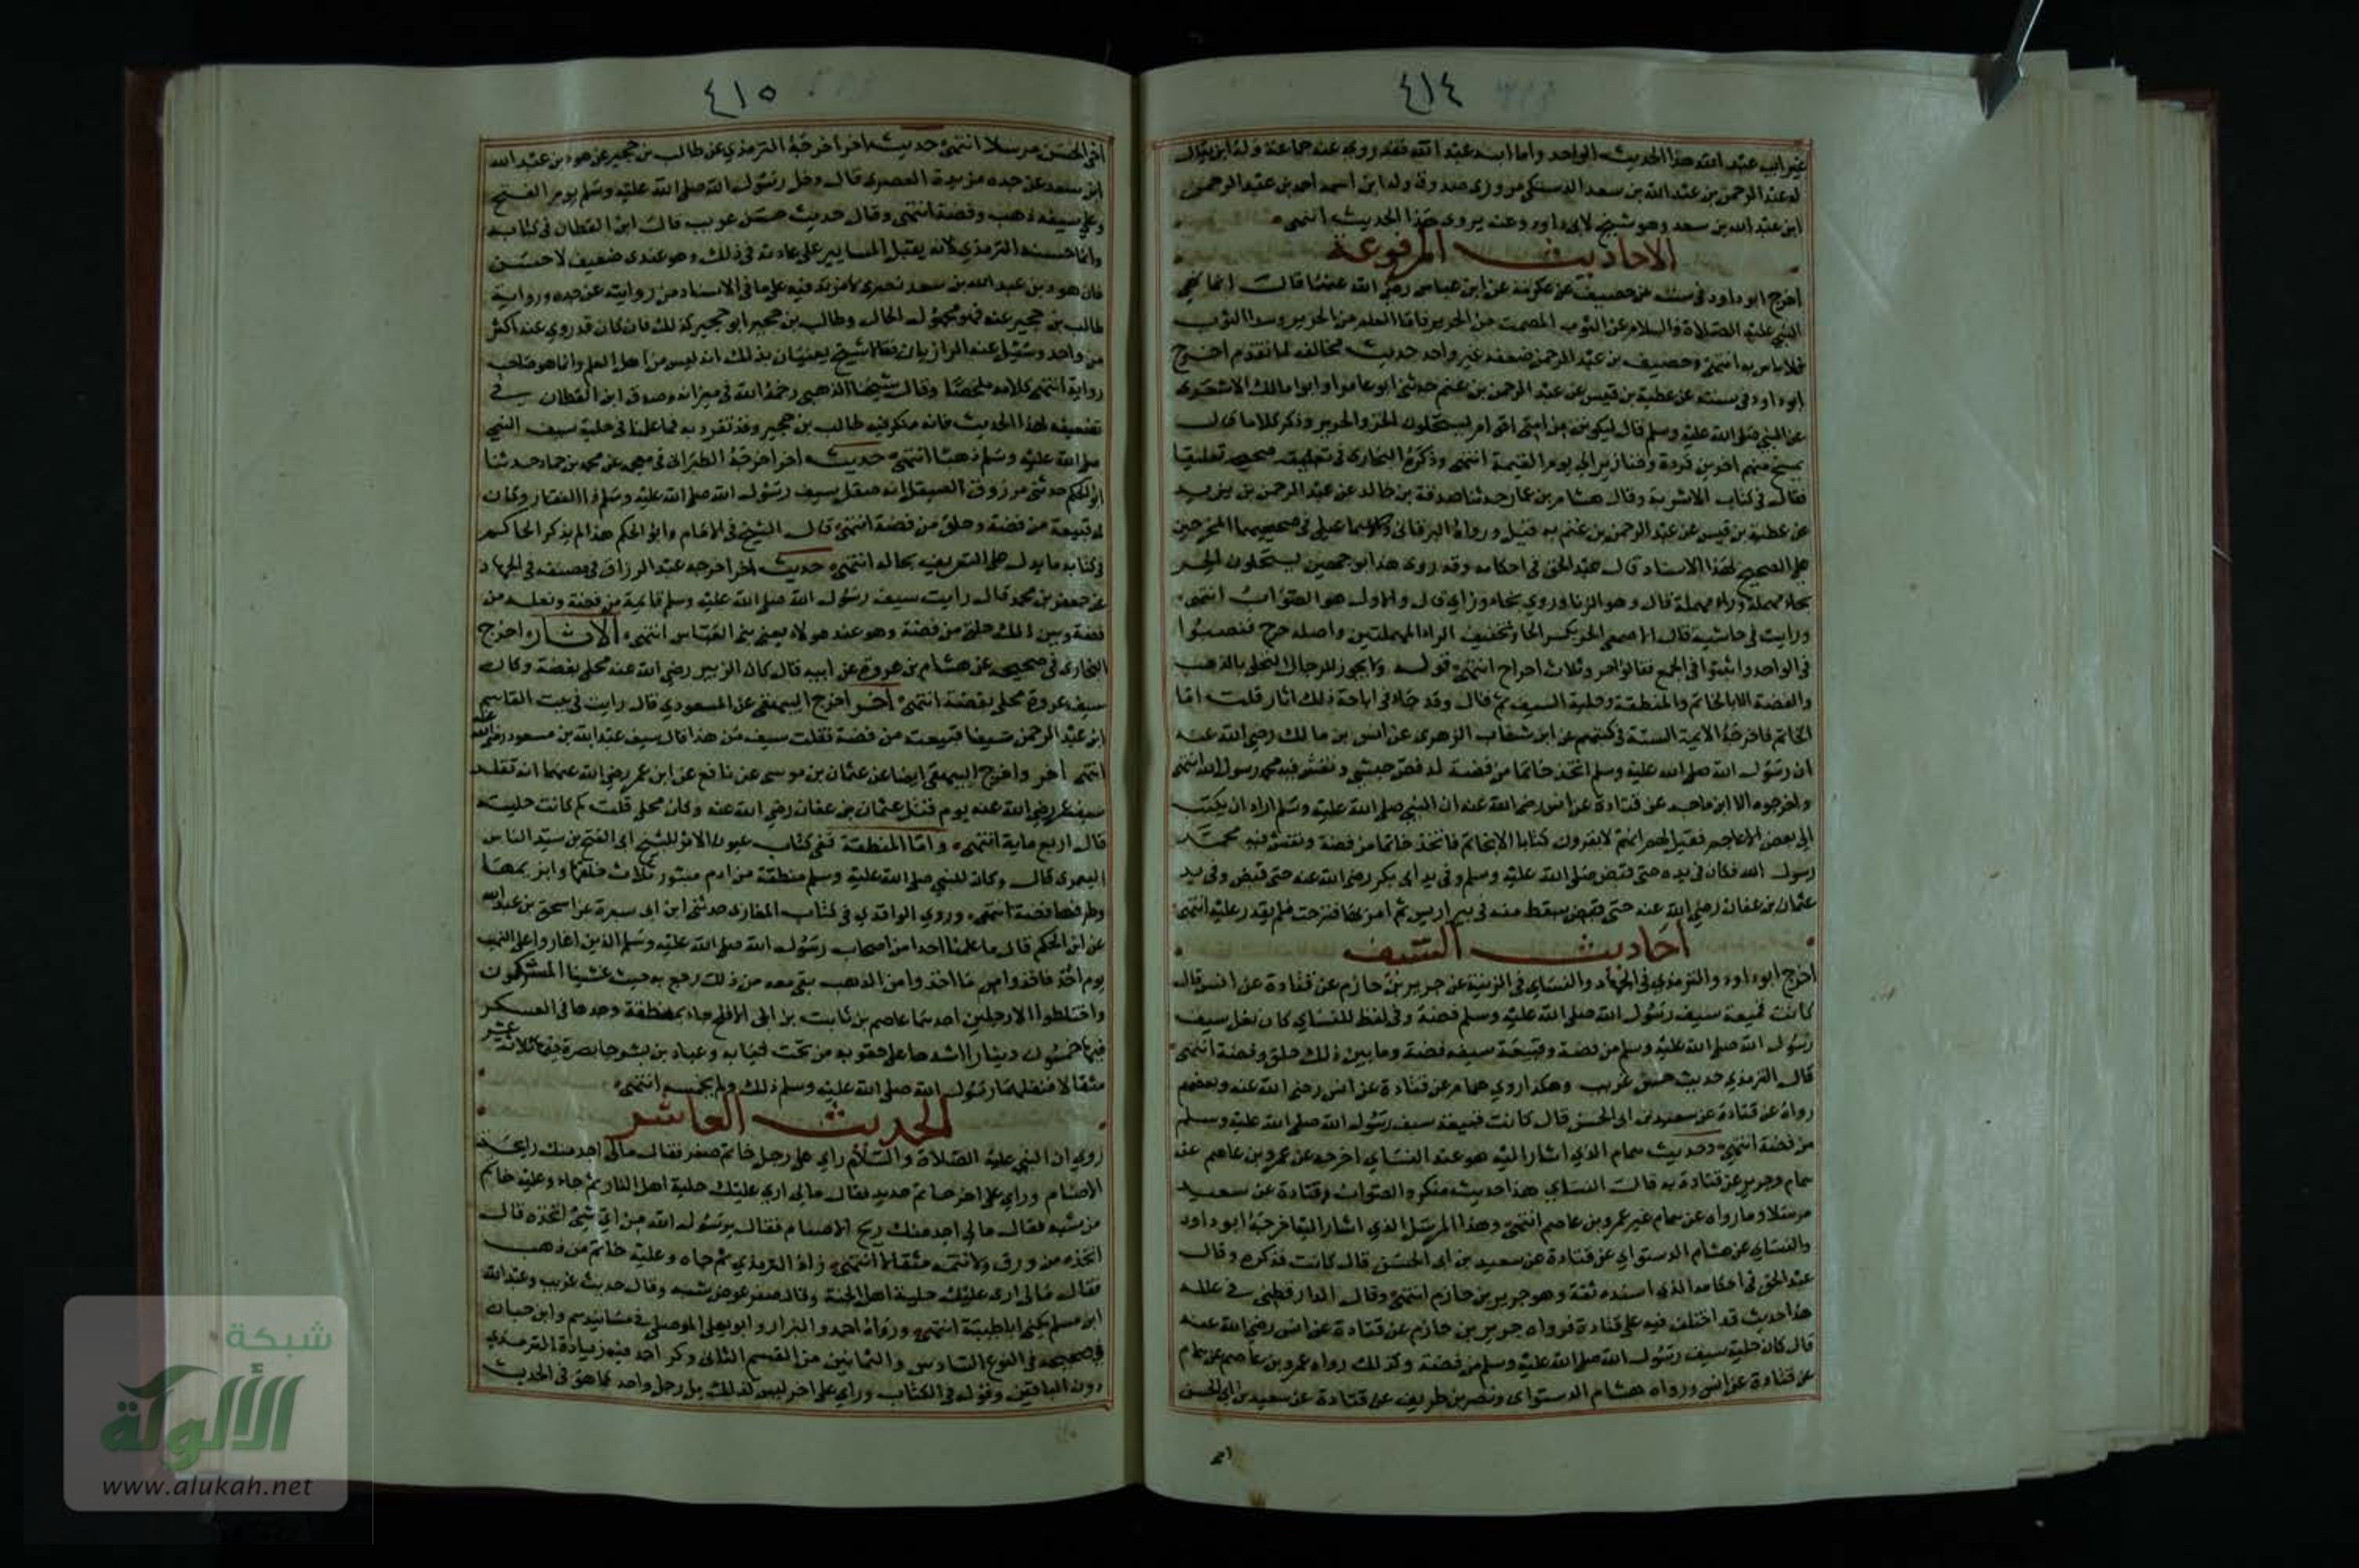 ٤١٤
غير ابيه عبد الله هذا الحديث الواحد واما ابنه عبد الله فقد روى عنه جماعة وله ابن يقال
له عبد الرحمن بن عبد الله بن سعد الدستكي مروزي صدوق وله ابن اسمه احمد بن عبد الرحمن
ابن عبد الله بن سعد وهو شيخ لابي داود وعنه يروي هذا الحديث انتهى
الاحاديث المرفوعة
اخرج ابو داود في سننه عن خصيف عن عكرمة عن ابن عباس رضي الله عنهما قال انما نهى
النبي عليه الصلاة والسلام عن الثوب المصمت من الحرير فاما العلم من الحرير وسدا الثوب
فلا باس به انتهى وخصيف بن عبد الرحمن ضعفه غير واحد حديث مخالف لما تقدم اخرج
ابو داود في سننه عن عطية بن قيس عن عبد الرحمن بن غنم حدثني ابو عامر او ابو مالك الاشعري
عن النبي صلى الله عليه وسلم قال ليكونن من امتي اقوام يستحلون الخز والحرير وذكر كلاما قال
يمسخ منهم اخرين قردة وخنازير الى يوم القيمة انتهى وذكره البخاري في صحيحه تعليقا
فقال في كتاب الاشربة وقال هشام بن عمار حدثنا صدقة بن خالد عن عبد الرحمن بن يزيد
عن عطية بن قيس عن عبد الرحمن بن غنم به قيل ورواه البرقاني والاسماعيلي في صحيحيهما المخرجين
على الصحيح بهذا الاسناد قال عبد الحق في احكامه وقد روى هذا بوجهين يستحلون الحر
بحاء مهملة وراء مهملة قال وهو الزنا وروي بخاء وزاي قال والاول هو الصواب انتهى
ورايت في حاشية قال الاصمعي الحر بكسر الحا وتخفيف الراء المهملتين واصله حرح فنصبوا
في الواحد واثبتوا في الجمع فقالوا حر وثلاث احراح انتهى قوله ولا يجوز للرجال التحلي بالذهب
والفضة الا بالخاتم والمنطقة وحلية السيف ثم قال وقد جاء في اباحة ذلك اثار قلت اما
الخاتم فاخرجه الايمة الستة في كتبهم عن ابن شهاب الزهري عن انس بن مالك رضي الله عنه
ان رسول الله صلى الله عليه وسلم اتخذ خاتما من فضة له فص حبشي ونقش فيه محمد رسول الله انتهى
واخرجوه الا ابن ماجه عن قتادة عن انس رضي الله عنه ان النبي صلى الله عليه وسلم اراد ان يكتب
الى بعض الاعاجم فقيل لهم انهم لا يقرون كتابا الا بخاتم فاتخذ خاتما من فضة ونقش فيه محمد
رسول الله فكان في يده حتى قبض صلى الله عليه وسلم وفي يد ابي بكر رضي الله عنه حتى قبض وفي يد
عثمان بن عفان رضي الله عنه حتى سقط منه في بير اريس ثم امر بها فنزحت فلم يقدر عليه انتهى
احاديث السيف
اخرج ابو داود والترمذي في الجهاد والنساي في الزينة عن جرير بن حازم عن قتادة عن انس قال
كانت قبيعة سيف رسول الله صلى الله عليه وسلم فضة وفي لفظ للنساي كان نعل سيف
رسول الله صلى الله عليه وسلم من فضة وقبيعة سيفه فضة وما بين ذلك حلق فضة انتهى
قال الترمذي حديث حسن غريب وهكذا روي همام عن قتادة عن انس رضي الله عنه وبعضهم
رواه عن قتادة عن سعيد بن ابى الحسن قال كانت قبيعة سيف رسول الله صلى الله عليه وسلم
من فضة انتهى وحديث همام الذي اشار اليه هو عند النساي اخرجه عن عمرو بن عاصم عنه
همام وجرير عن قتادة به قال النساي هذا حديث منكر والصواب قتادة عن سعيد
مرسلا وما رواه عن همام غير عمرو بن عاصم انتهى وهذا المرسل الذي اشار اليه اخرجه ابو داود
والنساي عن هشام الدستواي عن قتادة عن سعيد بن ابى الحسن قال كانت فذكره وقال
عبد الحق في احكامه الذي اسنده ثقة وهو جرير بن حازم انتهى وقال الدارقطني في علله
هذا حديث قد اختلف فيه على قتادة فرواه جرير بن حازم عن قتادة عن انس رضي الله عنه
قال كان حلية سيف رسول الله صلى الله عليه وسلم من فضة وكذلك رواه عمرو بن عاصم عن همام
عن قتادة عن انس ورواه هشام الدستواي ونصر بن طريف عن قتادة عن سعيد بن ابي الحسن
٤١٥
اخي الحسن مرسلا انتهى حديث اخر اخرجه الترمذي عن طالب بن حجير عن هود بن عبد الله
ابن سعد عن جده مزيدة العصري قال دخل رسول الله صلى الله عليه وسلم يوم الفتح
وعلى سيفه ذهب وفضة انتهى وقال حديث حسن غريب قال ابن القطان في كتابه
وانما حسنه الترمذي لانه يقبل المساتير على عادته في ذلك وهو عندي ضعيف لا حسن
فان هود بن عبد الله بن سعد بصري لا مزيد فيه على ما في الاسناد من روايته عن جده ورواية
طالب بن حجير عنه فهو مجهول الحال وطالب بن حجير ابو حجير كذلك فان كان قد روي عنه اكثر
من واحد وسيل عنه الرازيان فقالا شيخ يعنيان بذلك انه ليس من اهل العلم وانما هو صاحب
رواية انتهى كلامه ملخصا وقال شيخنا الذهبي رحمه الله في ميزانه وصدق ابن القطان في
تضعيفه لهذا الحديث فانه منكر فيه طالب بن حجير وقد تفرد به فما علمنا في حلية سيف النبي
صلى الله عليه وسلم ذهبا انتهى حديث اخر اخرجه الطبراني في معجمه عن محمد بن حماد حدثنا
ابو الحكم حدثني مرزوق الصيقل انه صقل سيف رسول الله صلى الله عليه وسلم ذا الفقار وكان
له قبيعة من فضة وحلق من فضة انتهى قال الشيخ في الامام وابو الحكم هذا لم يذكر الحاكم
في كتابه ما يدل على التعريف بحاله انتهى حديث اخر اخرجه عبد الرزاق في مصنفه في الجهاد
عن جعفر بن محمد قال رايت سيف رسول الله صلى الله عليه وسلم قايمة من فضة ونعله من
فضة وبين ذلك حلق من فضة وهو عند هولاء يعني بني العباس انتهى الاثار اخرج
البخاري في صحيحه عن هشام بن عروة عن ابيه قال كان الزبير رضي الله عنه محلى بفضة وكان
سيف عروة محلى بفضة انتهى اخر اخرج البيهقي عن المسعودي قال رايت في بيت القاسم
ابن عبد الرحمن سيفا قبيعته من فضة فقلت سيف من هذا قال سيف عبد الله بن مسعود رضي الله عنه
انتهى اخر واخرج البيهقي ايضا عن عثمان بن موسى عن نافع عن ابن عمر رضي الله عنهما انه تقلد
سيف عمر رضي الله عنه يوم قتل عثمان بن عفان رضي الله عنه وكان محلى قلت كم كانت حليته
قال اربع ماية انتهى واما المنطقة ففي كتاب عيون الاثر للشيخ ابى الفتح بن سيد الناس
اليعمري قال وكان للنبي صلى الله عليه وسلم منطقة من ادم مبشور ثلاث حلقها وابزيمها
وطرفها فضة انتهى وروي الواقدي في كتاب المغازي حدثني ابن ابى سبرة عن اسحق بن عبد الله
عن ابن الحكم قال ما علمنا احدا من اصحاب رسول الله صلى الله عليه وسلم الذين اغاروا على النهب
يوم احد فاخذوا ما اخذوا من الذهب بقي معه من ذلك رجع به حيث غشينا المشركون
واختلطوا الا رجلين احدهما عاصم بن ثابت بن ابى الافلح جاء بمنطقة وجدها في العسكر
فيها خمسون دينارا شدها على حقويه من تحت ثيابه وعباد بن بشر جا بصرة فيها ثلاثة عشر
مثقالا فنفلهما رسول الله صلى الله عليه وسلم ذلك ولم يخمسه انتهى
الحديث العاشر
روي ان النبي عليه الصلاة والسلام راي على رجل خاتم صفر فقال مالى اجد منك رايحة
الاصنام وراي على اخر خاتم حديد فقال مالى ارى عليك حلية اهل النار ثم جاء وعليه خاتم
من شبه فقال مالى اجد منك ريح الاصنام فقال يا رسول الله من اي شيئ اتخذه قال
اتخذه من ورق ولا تتمه مثقالا انتهى زاد الترمذي ثم جاه وعليه خاتم من ذهب
فقال مالى ارى عليك حلية اهل الجنة وقال صفر عوض شبه وقال حديث غريب وعبد الله
ابن مسلم يكنى اباطيبة انتهى ورواه احمد والبزار وابو يعلى الموصلي في مسانيدهم وابن حبان
في صحيحه في النوع السادس والثمانين من القسم الثاني وذكر احمد فيه زيادة الترمذي
دون الباقين وقوله في الكتاب وراي على اخر ليس كذلك بل رجل واحد كما هو في الحديث
شبكة
الألوكة
www.alukah.net